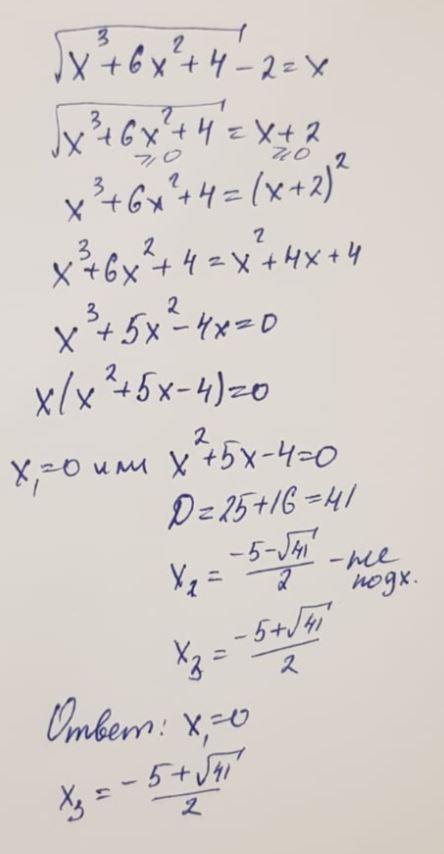 √(x³+6x²+4) - 2 = x
√(x³+6x²+4) = x+2
≥0 ≥0
x³+6x²+4 = (x+2)²
x³+6x²+4 = x²+4x+4
x³+5x²-4x=0
x(x²+5x-4)=0
x₁=0 или x²+5x-4=0
D=25+16=41
x₂ = (-5-√41)/2 - не подх.
x₃ = (-5+√41)/2
Ответ: x₁=0
x₃ = (-5+√41)/2